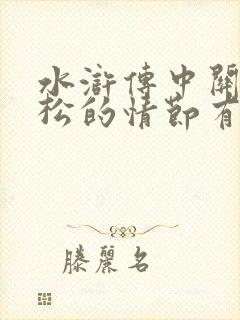 水滸傳中關
松的情節有
滕麗名